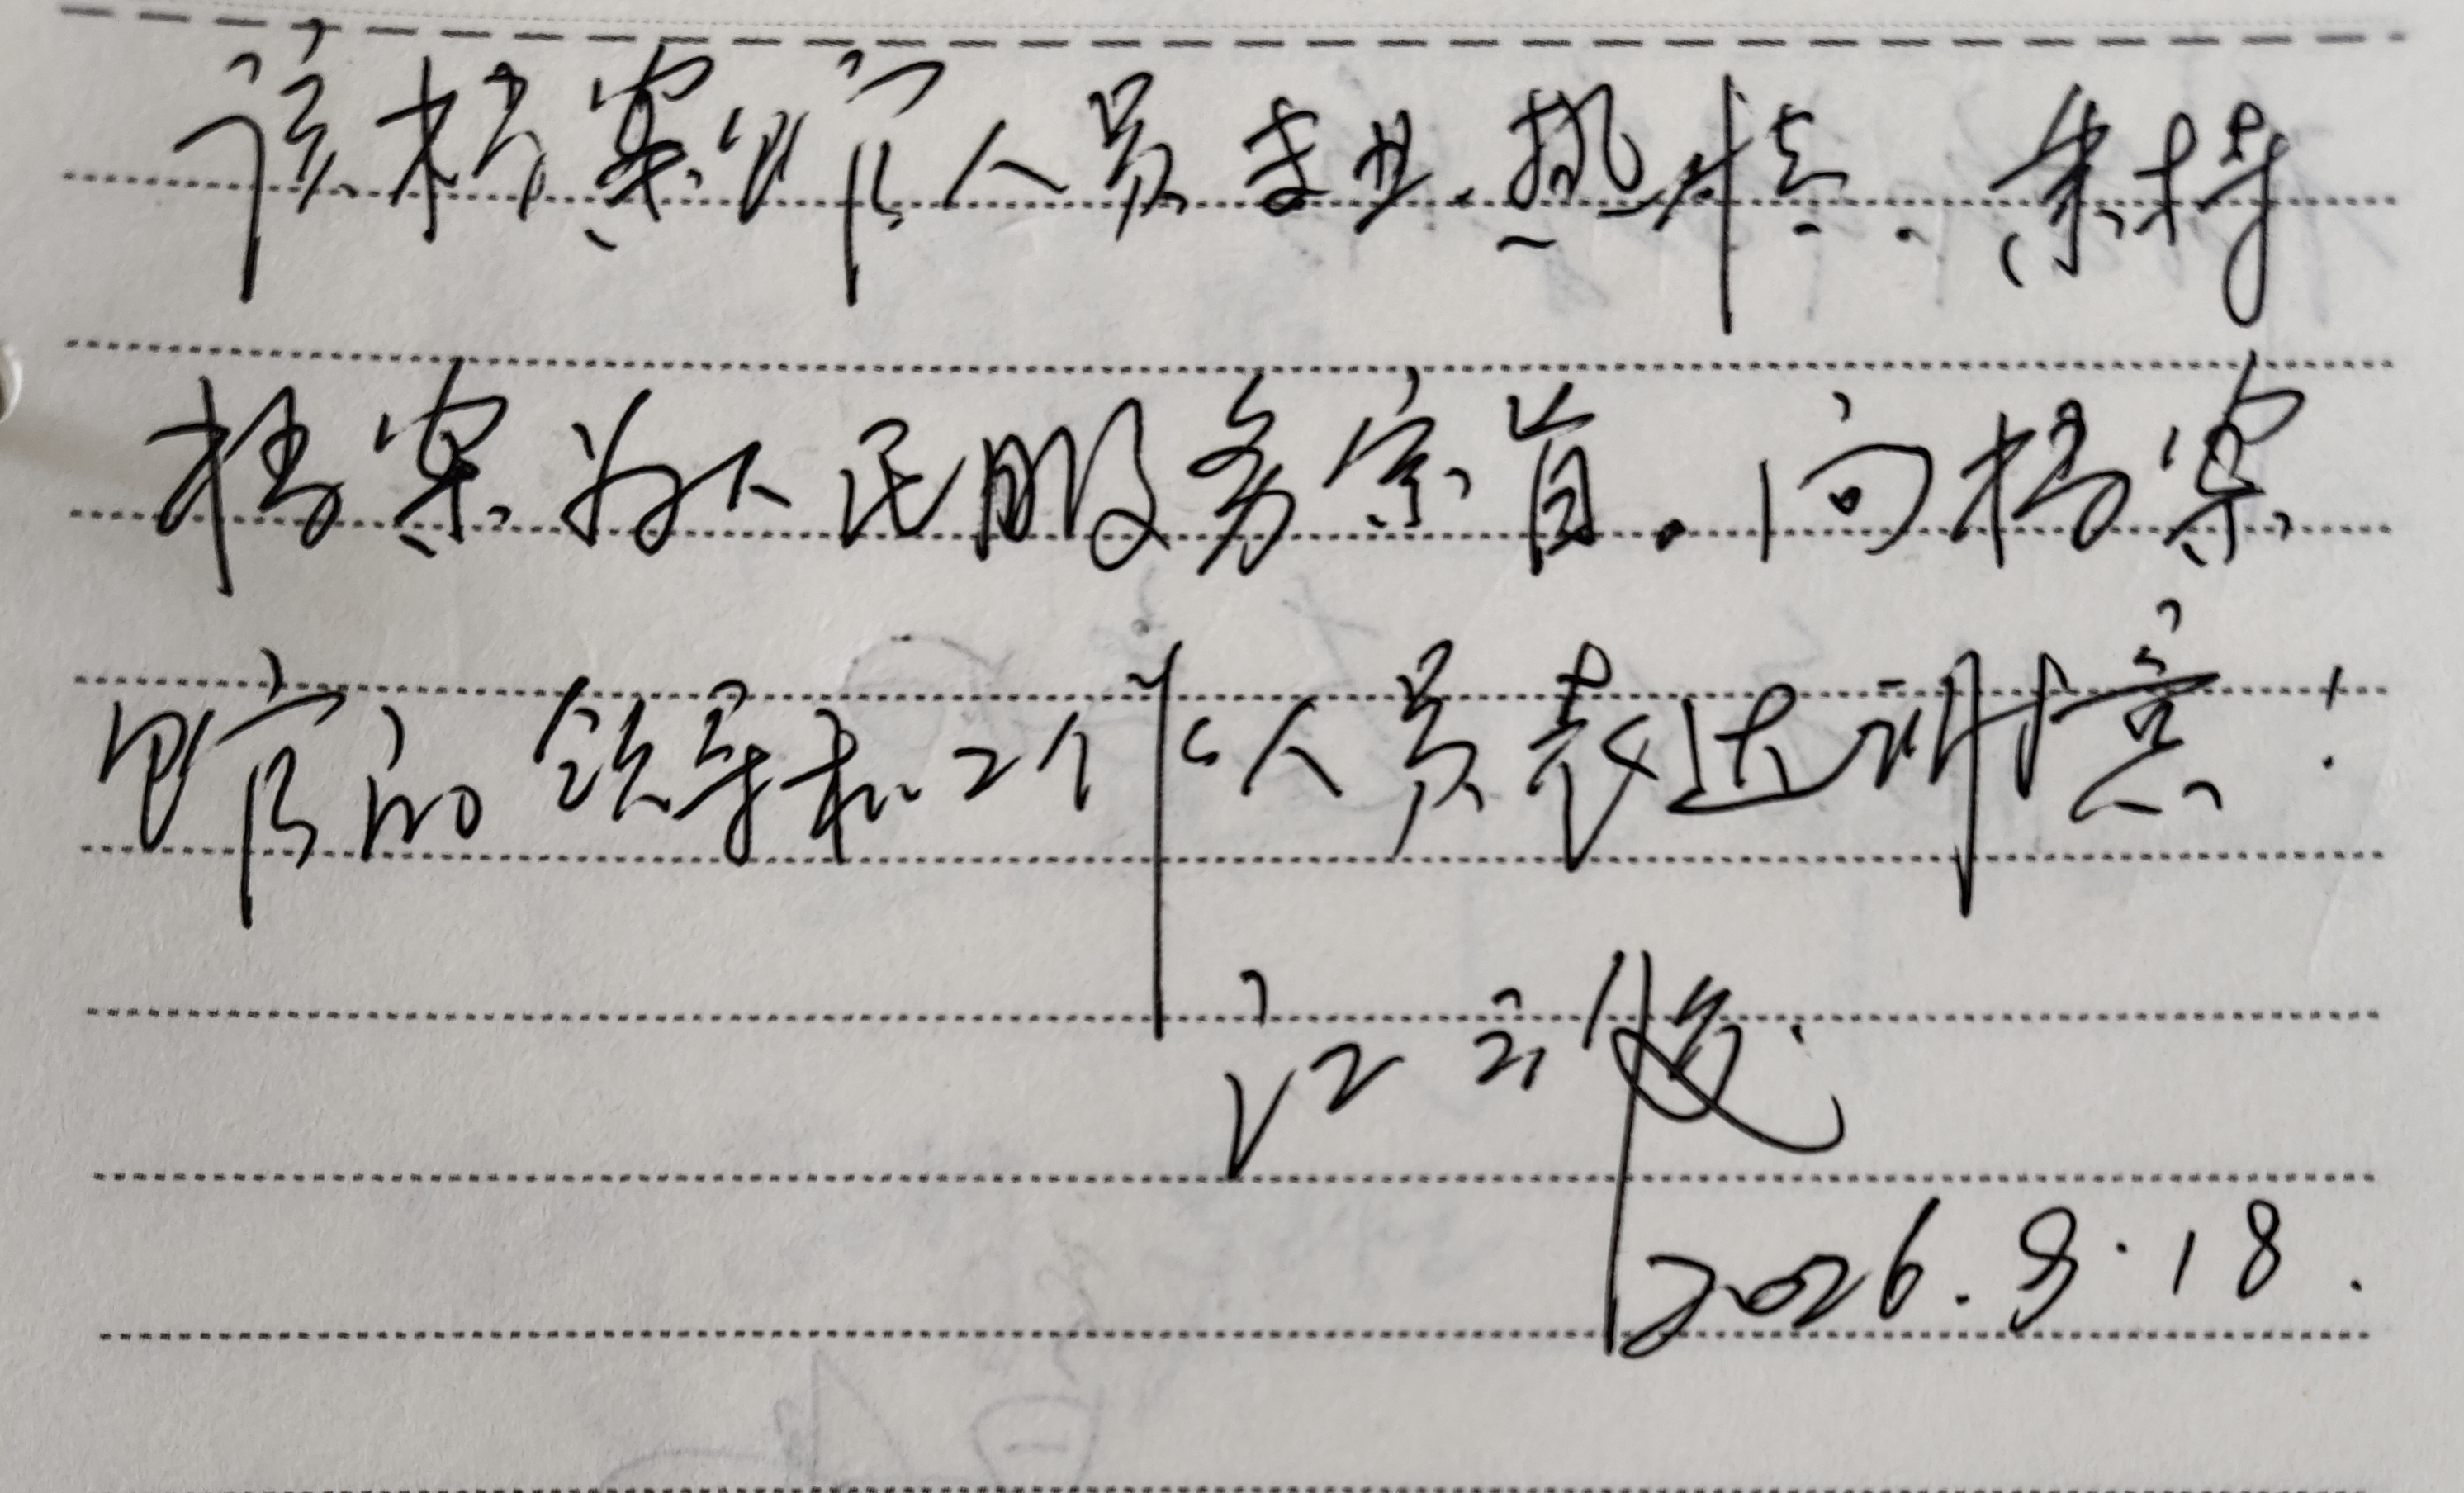 该档案馆人员专业、热情、秉持
档案为人民服务宗旨.向档案
馆的领导和工作人员表达谢意!
江云俊
2026.8.18.